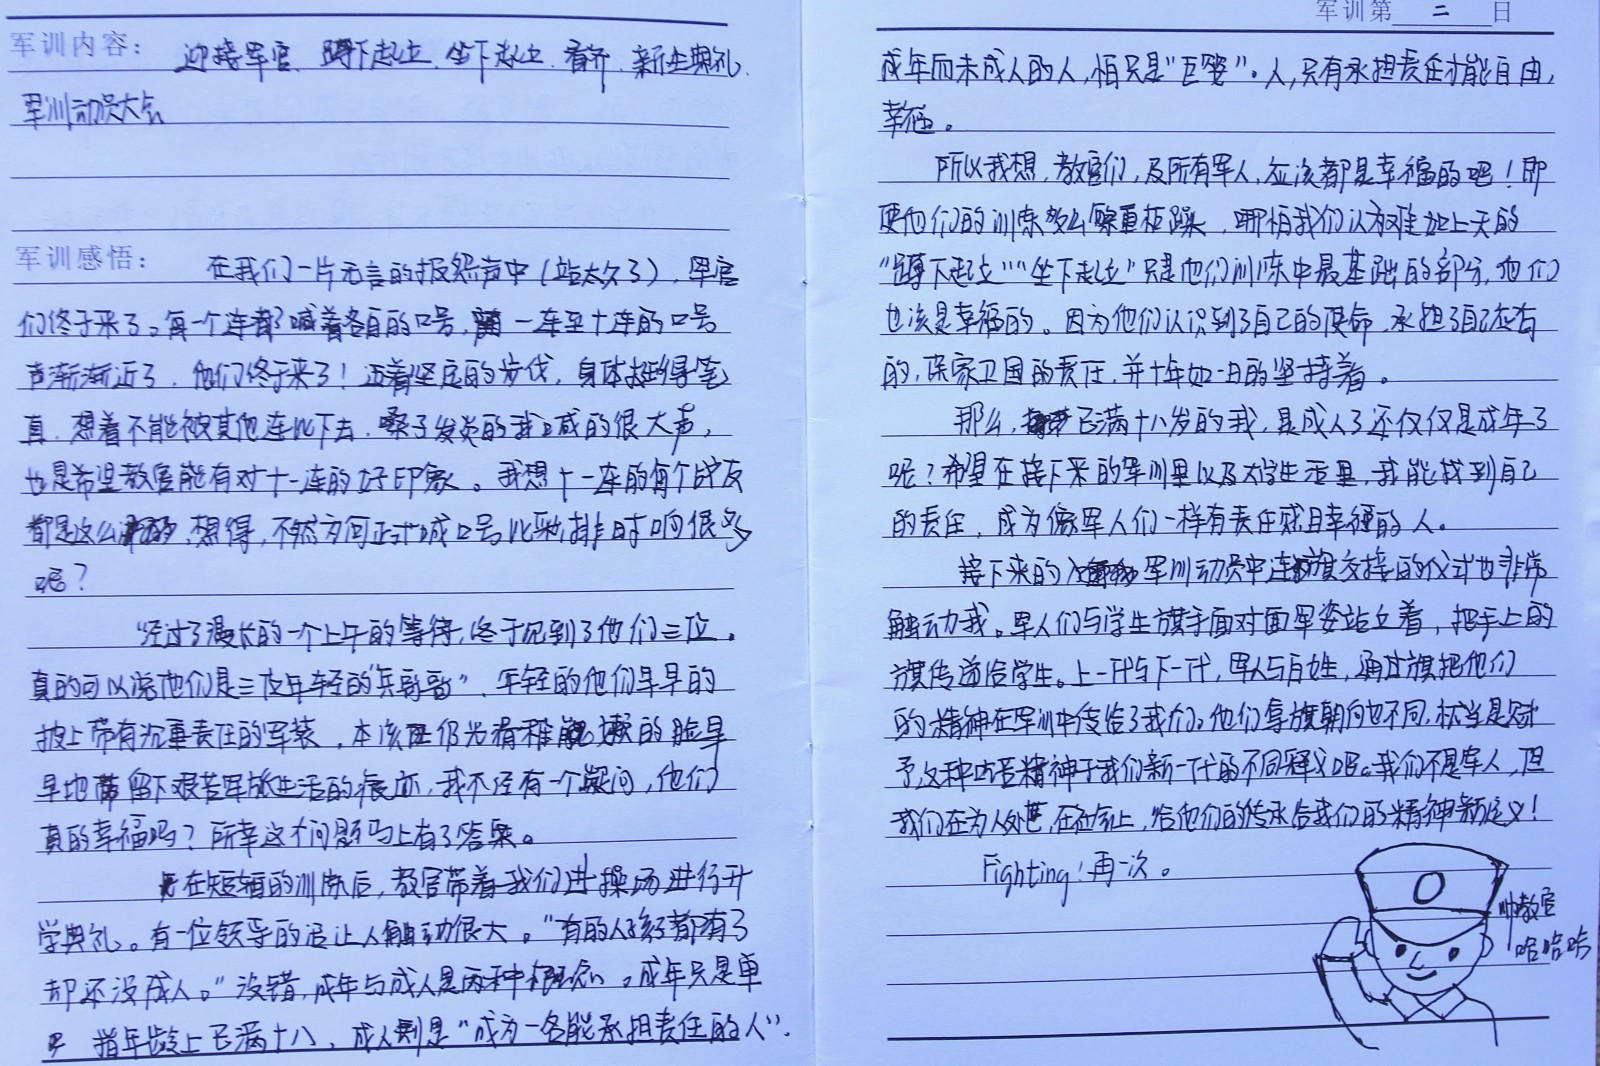 军训内容: 迎接军官、蹲下起立、坐下起立、看齐、新生典礼、
军训动员大会
军训感悟: 在我们一片无言的报怨声中(站太久了),军官
们终于来了。每一个连都喊着各自的口号,一连至十连的口号
声渐渐近了,他们终于来了!迈着坚定的步伐,身体挺得笔
直,想着不能被其他连比下去,嗓子发炎的我喊的很大声,
也是希望教官能有对十一连的好印象。我想十一连的每个战友
都是这么想得,不然为何正式喊口号比彩排时响很多
呢?
经过了漫长的一个上午的等待,终于见到了他们三位。
真的可以说他们是三位年轻的“兵哥哥”,年轻的他们早早的
披上带有沉重责任的军装,本该仍光滑稚嫩的脸早
早地留下艰苦军旅生活的痕迹,我不经有一个疑问,他们
真的幸福吗?所幸这个问题马上有了答案。
在短暂的训练后,教官带着我们进操场进行开
学典礼。有一位领导的话让人触动很大。“有的人孩子都有了
却还没成人。”没错,成年与成人是两种概念。成年只是单
指年龄上已满十八,成人则是“成为一名能承担责任的人”.
军训第 二 日
成年而未成人的人,怕只是“巨婴”。人,只有承担责任才能自由,
幸福。
所以我想,教官们,及所有军人,应该都是幸福的吧!即
使他们的训练多么繁重枯躁,哪怕我们认为难如上天的
“蹲下起立”“坐下起立”只是他们训练中最基础的部分,他们
也该是幸福的。因为他们认识到了自己的使命,承担了自己应有
的,保家卫国的责任,并十年如一日的坚持着。
那么,已满十八岁的我,是成人了还仅仅是成年了
呢?希望在接下来的军训里以及大学生活里,我能找到自己
的责任,成为像军人们一样有责任感且幸福的人。
接下来的军训动员中连旗交接的仪式也非常
触动我。军人们与学生旗手面对面军姿站立着,把手上的
旗传递给学生。上一代与下一代,军人与百姓,通过旗把他们
的精神在军训中传给了我们。他们拿旗朝向也不同,权当是赋
予这种吃苦精神于我们新一代的不同释义吧。我们不是军人,但
我们在为人处世,在社会上,给他们的传承给我们的精神新定义!
Fighting!再一次。
帅教官
哈哈哈